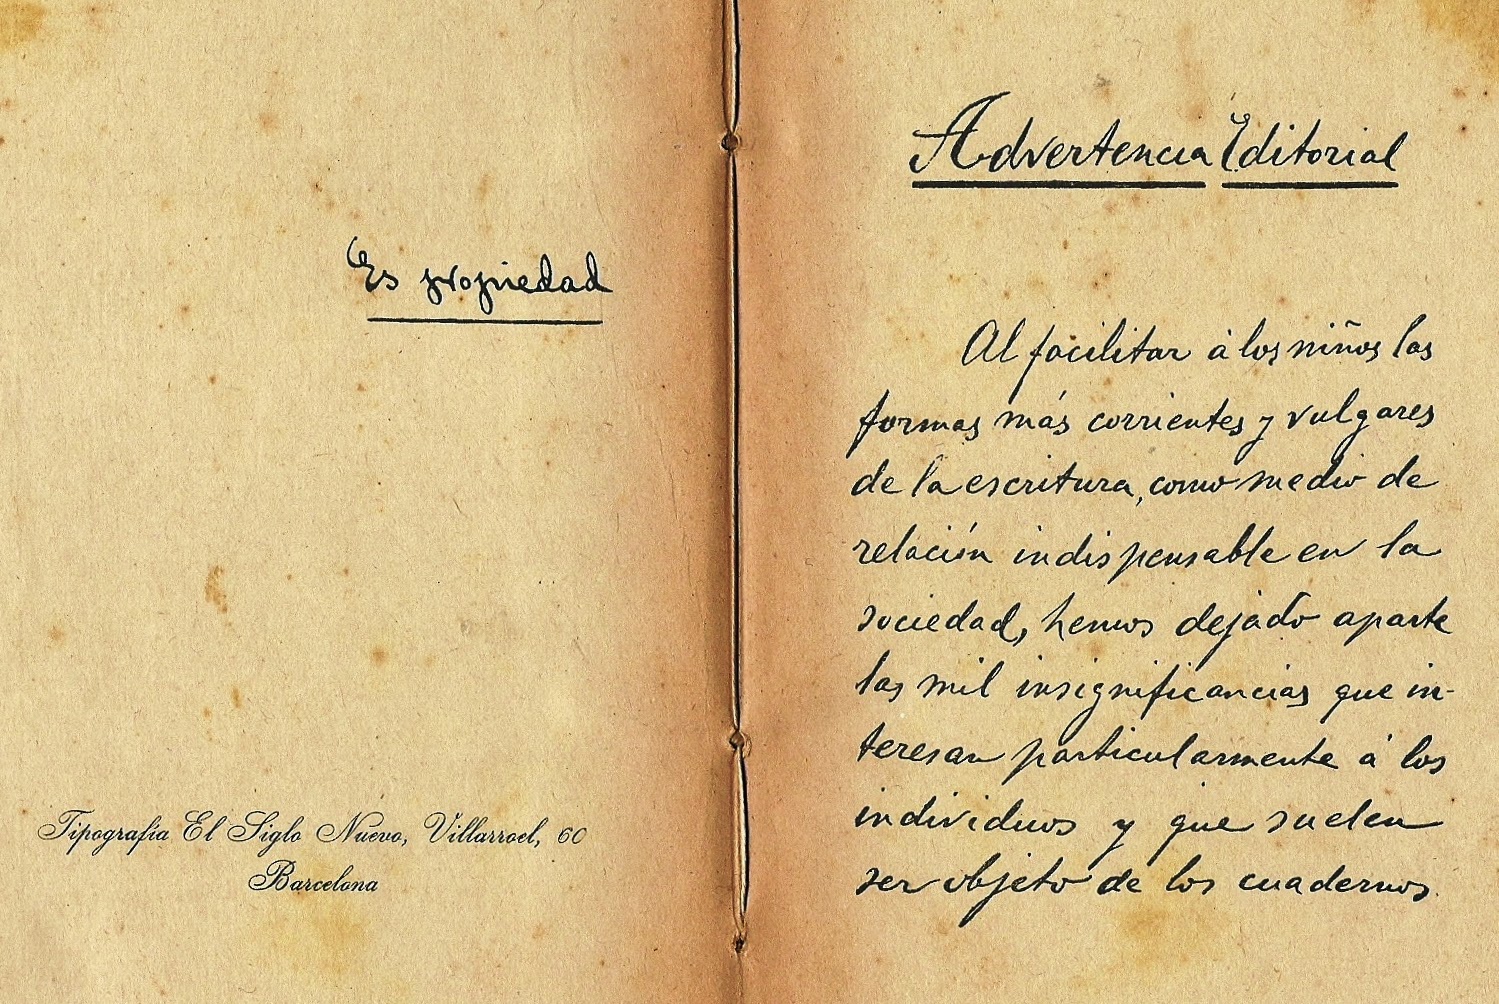 Es propiedad
Tipografía El Siglo Nuevo, Villarroel, 60
Barcelona
Advertencia Editorial
Al facilitar á los niños las
formas más corrientes y vulgares
de la escritura, como medio de
relación indispensable en la
sociedad, hemos dejado aparte
las mil insignificancias que in-
teresan particularmente á los
individuos y que suelen
ser objeto de los cuadernos